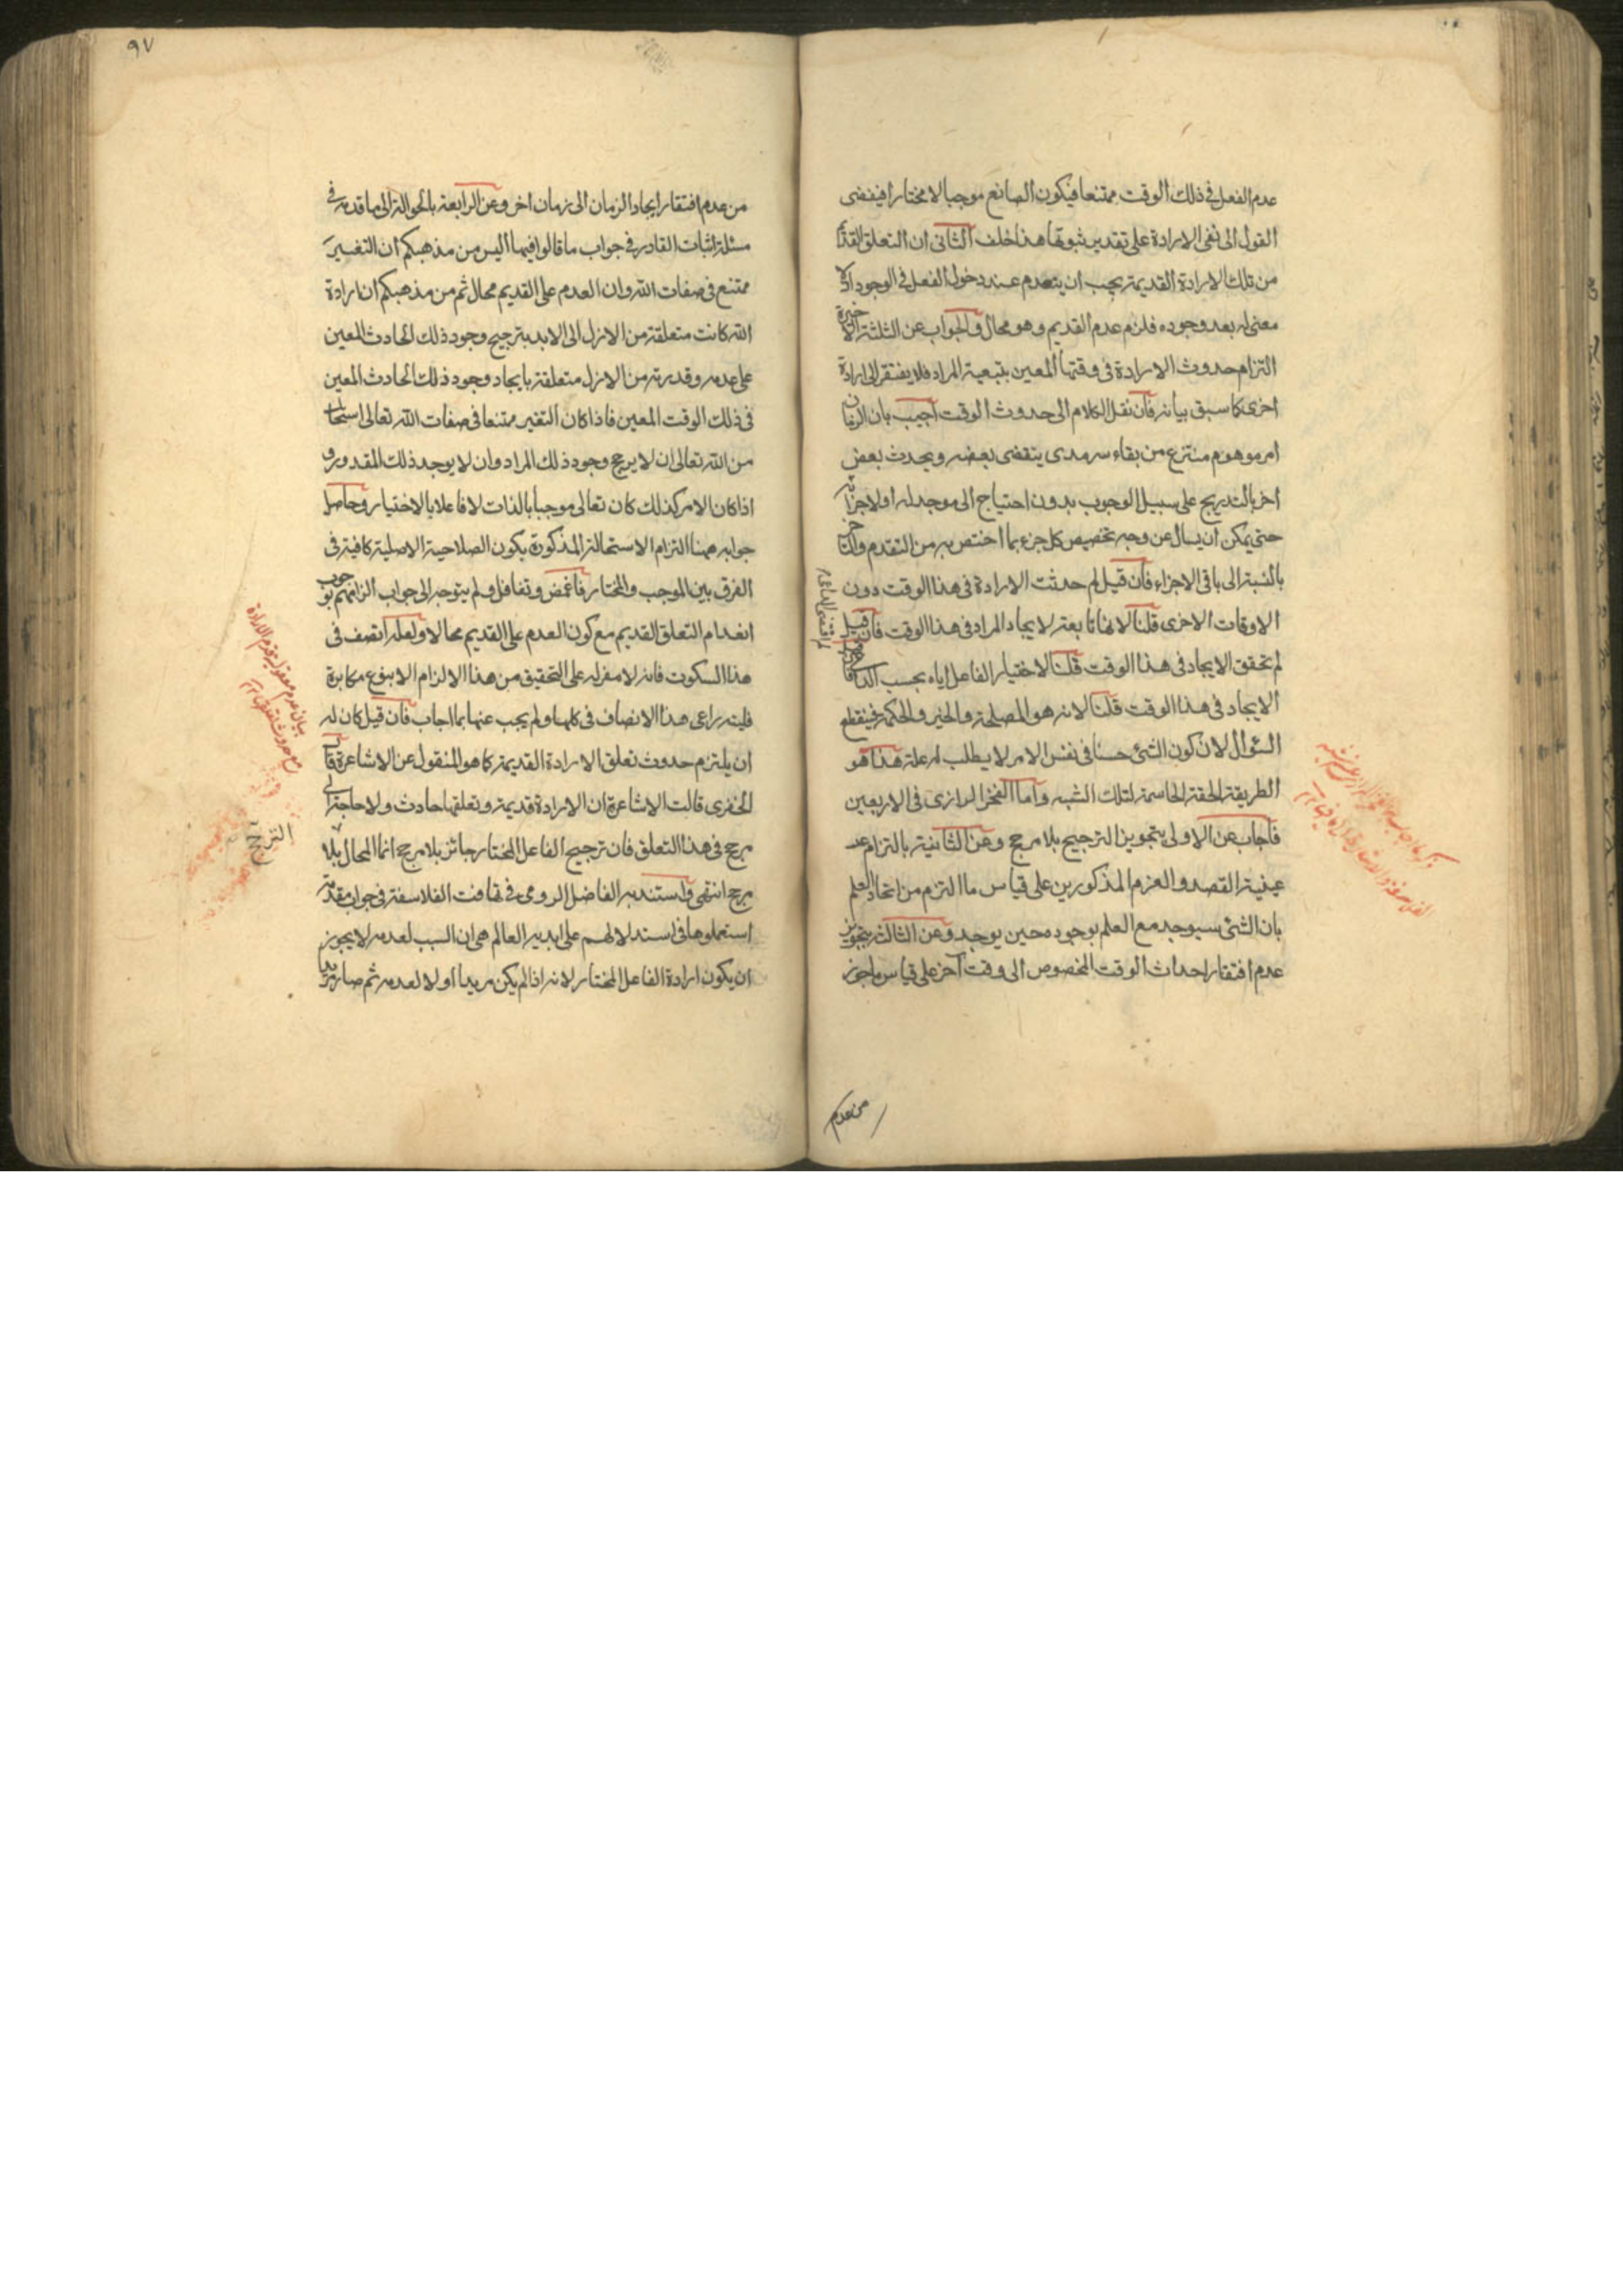 عدم الفعل فى ذلك الوقت ممتنعا فيكون الصانع موجبا لا مختارا فيفضى
القول الى نفى الارادة على تقدير ثبوتها هذا خلف الثانى ان التعلق القديم
من تلك الارادة القديمة يجب ان ينعدم عند دخول الفعل فى الوجود اذ لا
معنى له بعد وجوده فلزم عدم القديم وهو محال والجواب عن الثلثة الاخيرة
التزام حدوث الارادة فى وقتها المعين بتبعية المراد فلا يفتقر الى ارادة
اخرى كما سبق بيانه فان نقل الكلام الى حدوث الوقت اجيب بان الزمان
امر موهوم منتزع من بقاء سرمدى ينقضى بعضه ويحدث بعض
اخر بالتدريج على سبيل الوجوب بدون احتياج الى موجد له او لاجزائه
حتى يمكن ان يسال عن وجه تخصيص كل جزء بما اختص به من التقدم والتاخر
بالنسبة الى باقى الاجزاء فان قيل لم حدثت الارادة فى هذا الوقت دون
الاوقات الاخرى قلنا لانها تابعة لايجاد المراد فى هذا الوقت فان قيل
لم تحقق الايجاد فى هذا الوقت قلنا لاختيار الفاعل اياه بحسب الداعى
الايجاد فى هذا الوقت قلنا لانه هو المصلحة والخير والحكمة فينقطع
السؤال لان كون الشئ حسنا فى نفس الامر لا يطلب له علة هذا هو
الطريقة الحقة الحاسمة لتلك الشبه واما الفخر الرازى فى الاربعين
فاجاب عن الاولى بتجويز الترجيح بلا مرجح وعن الثانية بالتزام عدم
عينية القصد والعزم المذكورين على قياس ما التزم من اتحاد العلم
بان الشئ سيوجد مع العلم بوجوده حين يوجد وعن الثالثة بتجويز
عدم افتقار احداث الوقت المخصوص الى وقت آخر على قياس ما جوز
من عدم
٩٧
من عدم افتقار ايجاد الزمان الى زمان اخر وعن الرابعة بالحوالة الى ما قدمه فى
مسئلة اثبات القادر فى جواب ما قالوا فيها أليس من مذهبكم ان التغيير
ممتنع فى صفات الله وان العدم على القديم محال ثم من مذهبكم ان ارادة
الله كانت متعلقة من الازل الى الابد بترجيح وجود ذلك الحادث المعين
على عدمه وقدرته من الازل متعلقة بايجاد وجود ذلك الحادث المعين
فى ذلك الوقت المعين فاذا كان التغير ممتنعا فى صفات الله تعالى استحال
من الله تعالى ان لا يرجح وجود ذلك المراد وان لا يوجد ذلك المقدور و
اذا كان الامر كذلك كان تعالى موجبا بالذات لا فاعلا بالاختيار وحاصل
جوابه ههنا التزام الاستحالة المذكورة بكون الصلاحية الاصلية كافية فى
الفرق بين الموجب والمختار فاغمض وتغافل ولم يتوجه الى جواب الزامهم بوجوب
انعدام التعلق القديم مع كون العدم على القديم محالا ولعله انصف فى
هذا السكوت فانه لا مفر له على التحقيق من هذا الالزام الا بنوع مكابرة
فليته راعى هذا الانصاف فى كلها ولم يجب عنها بما اجاب فان قيل كان له
ان يلتزم حدوث تعلق الارادة القديمة كما هو المنقول عن الاشاعرة قال
الخفرى قالت الاشاعرة ان الارادة قديمة وتعلقها حادث ولا حاجة الى
مرجح فى هذا التعلق فان ترجيح الفاعل المختار جائز بلا مرجح انما المحال بلا
مرجح انتهى واستند به الفاضل الرومى فى تهافت الفلاسفة فى جواب مقدمة
استعملوها فى استدلالهم على ابدية العالم هى ان السبب لعدمه لا يجوز
ان يكون ارادة الفاعل المختار لانه اذا لم يكن مريدا اولا لعدمه ثم صار مريدا